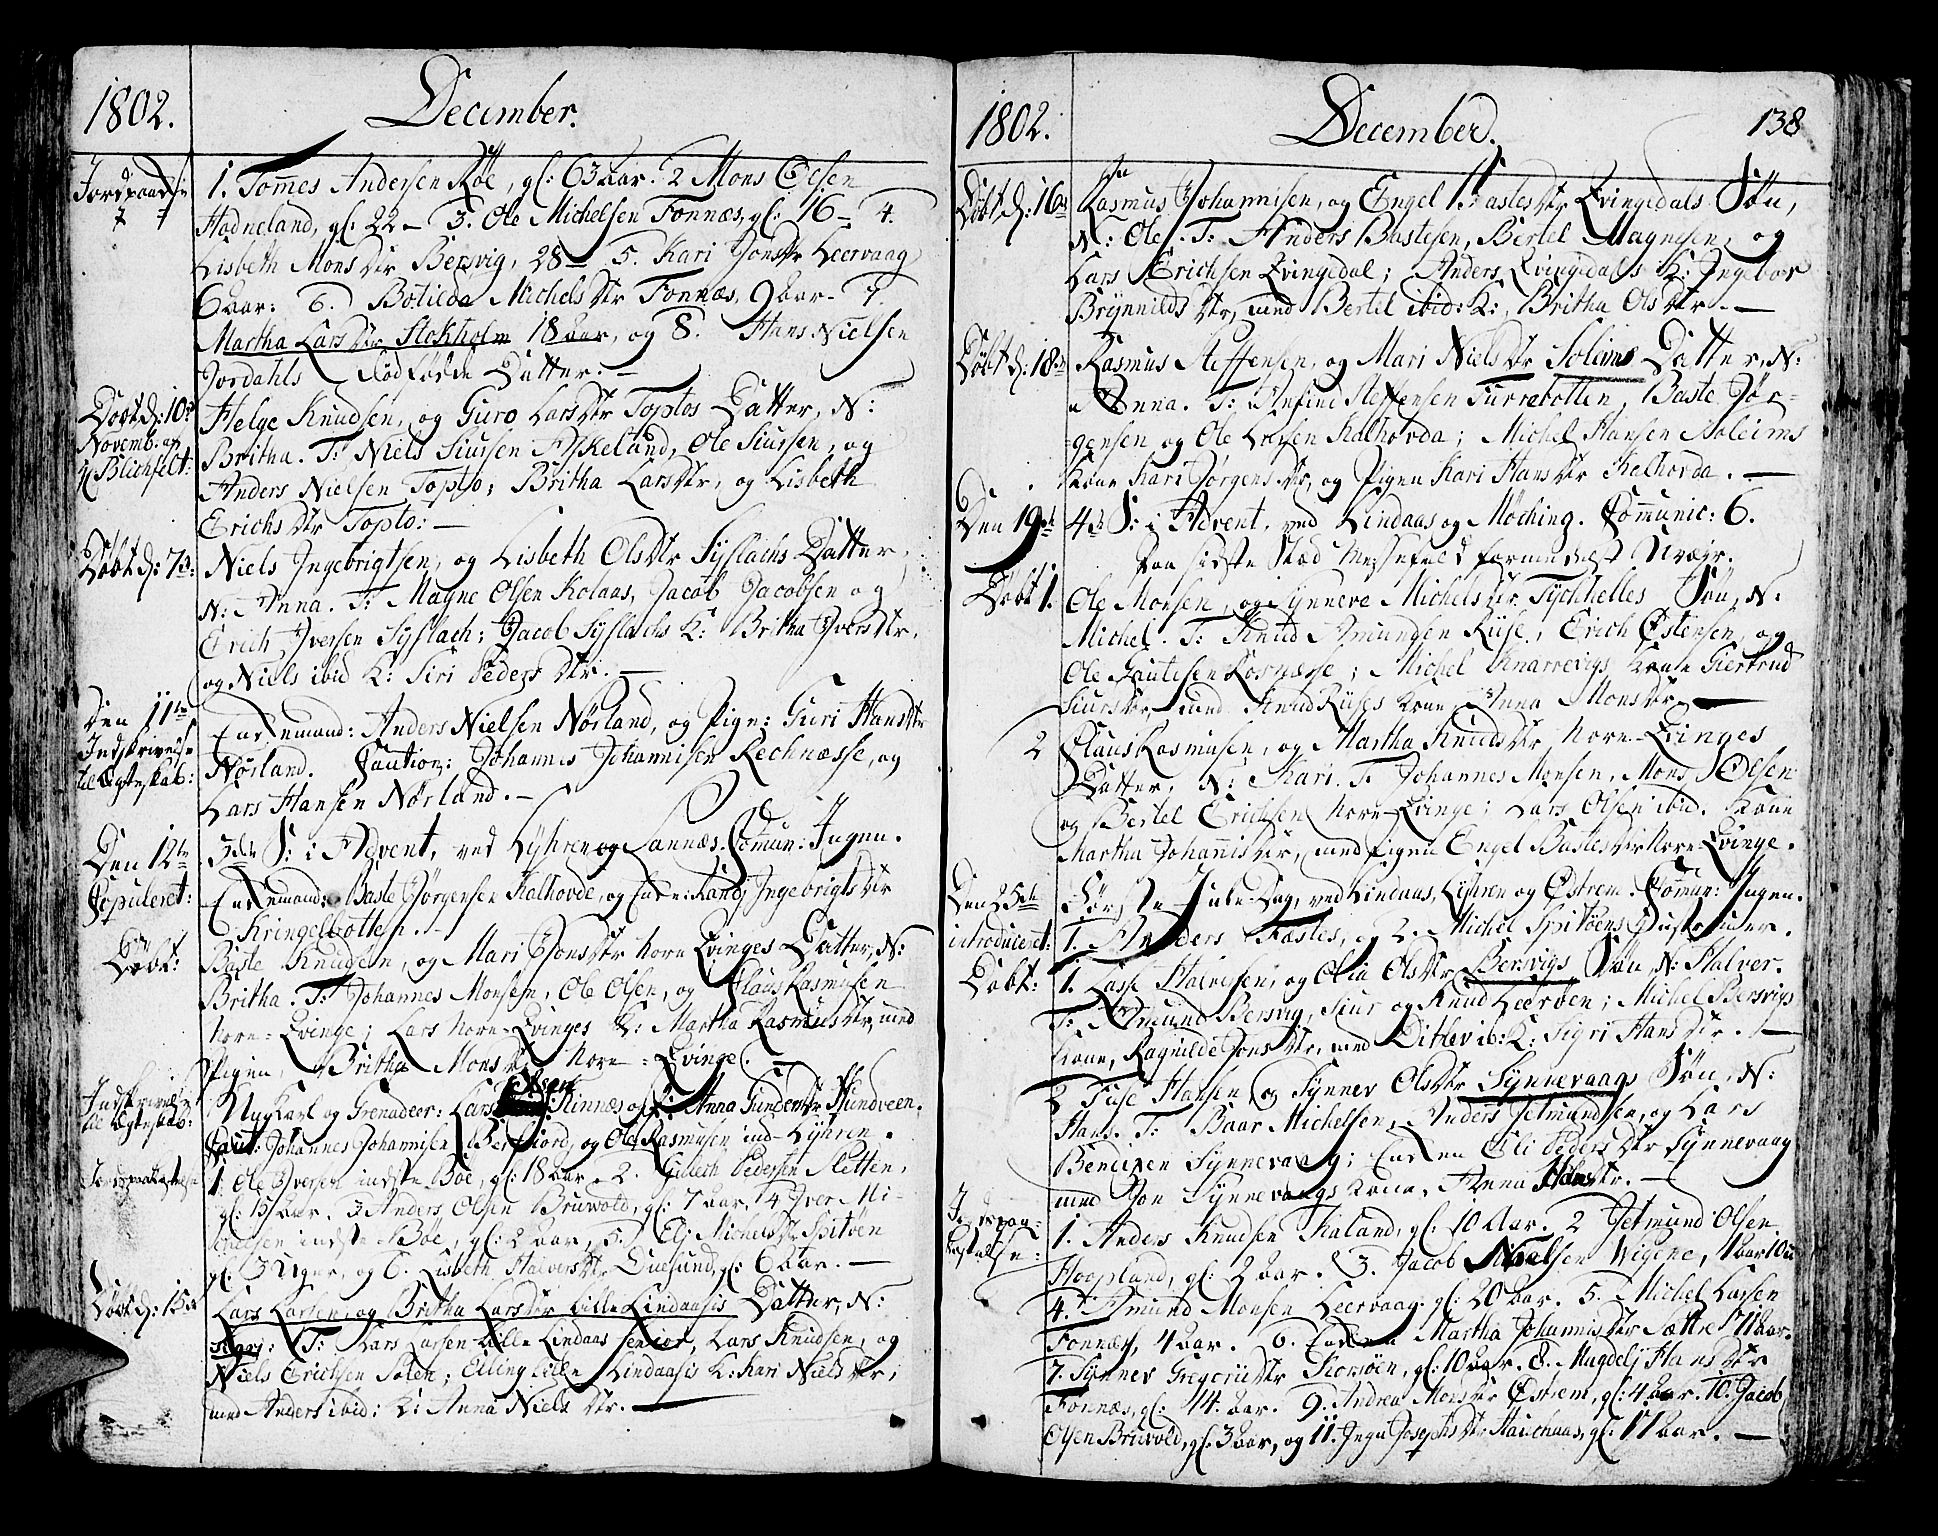 1802. December.
Jordpaakastelse 1. Tomes Andersen Røe, gl: 63 aar. 2 Mons Olsen
Hodneland, gl: 22 – 3. Ole Michelsen Fonnæs, gl: 16 – 4.
Lisbeth Mons Dtr Bersvig, 28 – 5. Kari Jons Dtr Leervaag
6 aar: 6. Botilda Michels Dtr Fonnæs, 9 aar – 7.
Martha Lars Dtr Stokholm 18 aar, og 8. Hans Nielsen
Jordahls dødfødde Datter. –
Døbt d: 10de Helge Knudsen, og Guro Lars Dtr Toptos Datter, N:
Novemb. af Britha. T: Niels Siursen Askeland, Ole Siursen, og
H Blichfelt: Anders Nielsen Topto; Britha Lars Dtr, og Lisbeth
Erichs Dtr Topto: –
Døbt d: 7de: Niels Ingebrigtsen, og Lisbeth Ols Dtr Syslachs Datter,
N: Anna. T: Magne Olsen Kolaas, Jacob Jacobsen og
Erich Iversen Syslach; Jacob Syslachs K: Britha Ivers Dtr,
og Niels ibid K: Siri Peders Dtr. –
Den 11te Enkemand: Anders Nielsen Nørland, og Pigen: Guri Hans Dtr
Indskrivelse Nørland. Caution: Johannes Johannisen Rechnæsse, og
til Ægteskab: Lars Hansen Nørland. –
Den 12te 3de S: i Advent, ved Lyhren og Sannæs. Comun: Ingen.
Copuleret: Enkemand: Baste Jørgensen Kalhovde, og Enke: Rand: Ingebrigts Dtr
Kringelbotten. –
Døbt: Baste Knudsen, og Mari Jons Dtr Nore Qvinges Datter, N:
Britha. T: Johannes Monsen, Ole Olsen, og Claus Rasmusen
Nore-Qvinge; Lars Nore-Qvinges K: Martha Rasmus Dtr, med
Pigen, Britha Mons Dtr Nore-Qvinge. –
Indskrivelse Ungkarl og Grenadeer: Lars Olsen Kinnes og P: Anna Gunders Dtr Hundveen.
til Ægteskab: Caut: Johannes Johannisen Berfiord, og Ole Rasmusen ind-Lyhren.
Jordpaakastelse 1. Ole Iversen indste Bøe, gl: 18 aar. 2. Gulech Pedersen Sletten,
gl: 15 aar. 3 Anders Olsen Bruvold, gl: 7 aar. 4 Iver Mi-
chelsen indste Bøe, gl: 2 aar, 5. Eli Michels Dtr Spitøen
gl: 13 Uger, og 6. Lisbeth Halvers Dtr Duesund, gl: 6 aar. –
Døbt d: 15de Lars Larsen, og Britha Lars Dtr Lille Lindaasis Datter, N:
Sigri: T: Lars Larsen Lille Lindaas senior, Lars Knudsen, og
Niels Erichsen Solen; Elling Lille Lindaasis K: Kari Niels Dtr,
med Anders ibid: K: Anna Niels Dtr. –
1802. December. 138
Døbt d: 16de Rasmus Johannisen, og Engel Bastes Dtr Qvingedals Søn,
N: Ole. T: Anders Bastesen, Bertel Magnesen, og
Lars Erichsen Qvingedal; Anders Qvingedals K: Ingebor
Brynnilds Dtr, med Bertel ibid: K: Britha Ols Dtr. –
Døbt d: 18de Rasmus Steffensen, og Mari Niels Dtr Soleims Datter, N:
Anna. T: Anfind Steffensen Turrebotten, Baste Jør-
gensen og Ole Larsen Kalhovda; Michel Hansen Soleims
Kone Kari Jørgens Dtr, og Pigen Kari Hans Dtr Kalhovda. –
Den 19de 4de S: i Advent, ved Lindaas og Møching. Comunic: 6.
Paa sidste Stæd Messefald formedelst Uvejr.
Døbt 1. Ole Monsen, og Synneve Michels Dtr Tychhelles Søn, N:
Michel. T: Knud Amundsen Riise, Erich Østensen, og
Ole Gautesen Kosnæsse; Michel Knarrevigs Kone Giertrud
Siurs Dtr, med Knud Riises Kone, Anna Mons Dtr. –
2 Claus Rasmusen, og Martha Knuds Dtr Nore-Qvinges
Datter, N: Kari. T: Johannes Monsen, Mons Olsen
og Bertel Erichsen Nore-Qvinge; Lars Olsen ibid. Kone
Martha Johannis Dtr, med Pigen Engel Bastes Dtr Nore Qvinge.
Den 25de Første Jule-Dag, ved Lindaas, Lyhren og Østrem. Comun: Ingen.
introduceret: 1. Anders Fastes, og 2. Michel Spitøens Hustruer.
Døbt: 1. Lasse Halvesen, og Olia Ols Dtr Bersvigs Søn, N: Halver.
T: Amund Bersvig, Siur og Knud Leerøen; Michel Bersvigs
Kone, Ragnilde Jons Dtr, med Ditlev ib: K: Sigri Hans Dtr. –
2 Tufe Hansen og Synnev Ols Dtr Synnevaags Søn, N:
Hans. T: Baar Michelsen, Anders Jetmundsen, og Lars
Bencixen Synnevaag; Enken Eli Peders Dtr Synnevaag
med Jon Synnevaags Kone, Anna Hans Dtr. –
Jordpaa-
kastelse: 1. Anders Knudsen Kaland, gl: 10 Aar. 2 Jetmund Olsen
Hoopland, gl: 2 aar. 3. Jacob Nielsen Wigene, 1 aar 10 u
4. Amund Monsen Leervaag gl: 20 aar. 5. Michel Larsen
Fonnæs, 4 aar. 6. Enken Martha Johannis Dtr Sættre 71 aar.
7. Synnev Gregorii Dtr Storsøen, gl: 10 aar. 8. Magdelj Hans Dtr
Fonnæs, gl: 44 aar. 9. Andrea Mons Dtr Østrem, gl: 4 aar. 10. Jacob
Olsen Bruvold, gl: 3 aar, og 11. Inga Josephs Dtr Hauchaas, gl: 17 aar. –